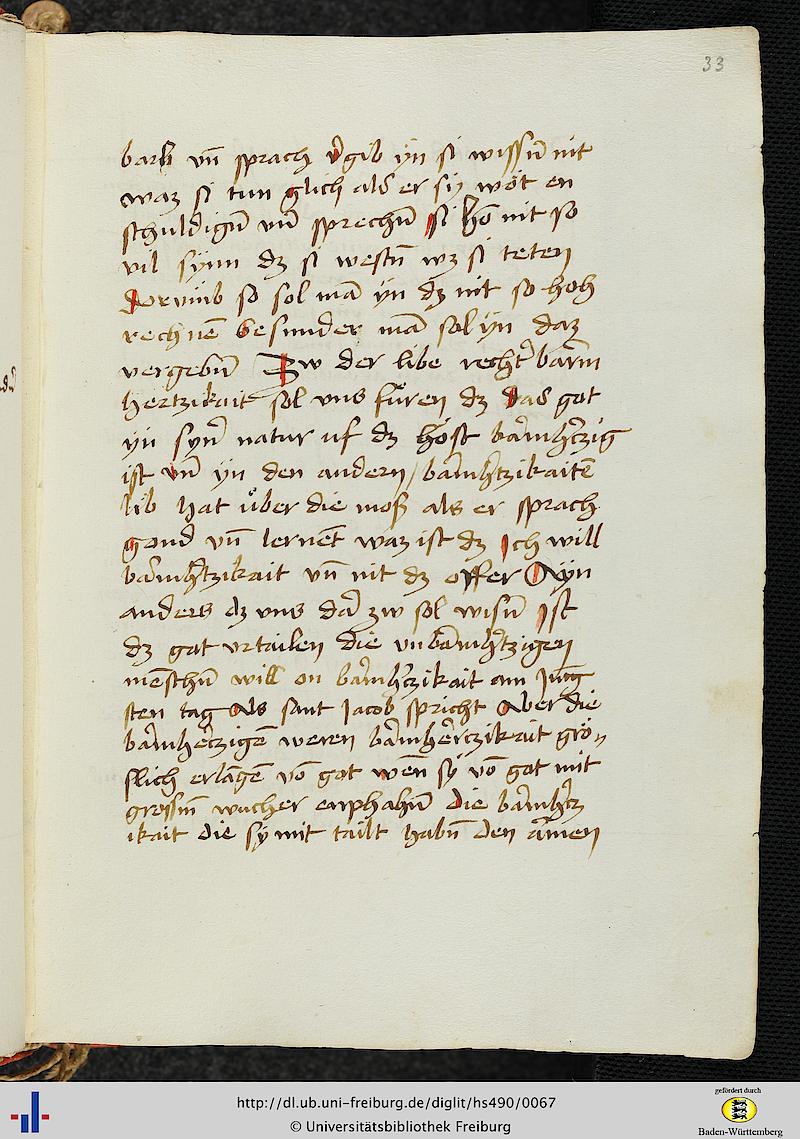 33
barb vn̄ sprach v̕gib yn si wissn̄ nit
waz si tun glich als er sy wöt en
schuldign̄ vn̄ sprechn̄ si hō nit so
vil synn dz si westn̄ wz si teten
Dorvmb so sol mā yn dz nit so hoh
rechnē besunder mā sol yn daz
vergebn̄ Zw der libe recht̕ barm
hertzikait sol vns füren dz das got
yn syn̕ natur uf dz höst bārmh̕tzig
ist vn̄ yn den andern / bārmh̕tzikaitē
lib hat über die moß als er sprach
gond vn̄ lernēt waz ist dz Ich will
bārmh̕tzikait vn̄ nit dz offer Ayn
anders dz vns dar̕ zw sol wisn̄ Ist
dz got vrtailen die vnbārmh̕tzigen
mēschn̄ will on bārmh̕tzikait am Jung
sten tag Als sant Jacob spricht Aber die
bārmhe̕tzigē weren bārmhe̕rczikait grö
slich erlāgē vō got wēn sy vō got mit
grossm̄ wucher enphahn̄ die bārmh̕tz
ikait die sy mit tailt habn̄ den ārmen
http://dl.ub.uni-freiburg.de/diglit/hs490/0067
© Universitätsbibliothek Freiburg
gefördert durch
Baden-Württemberg